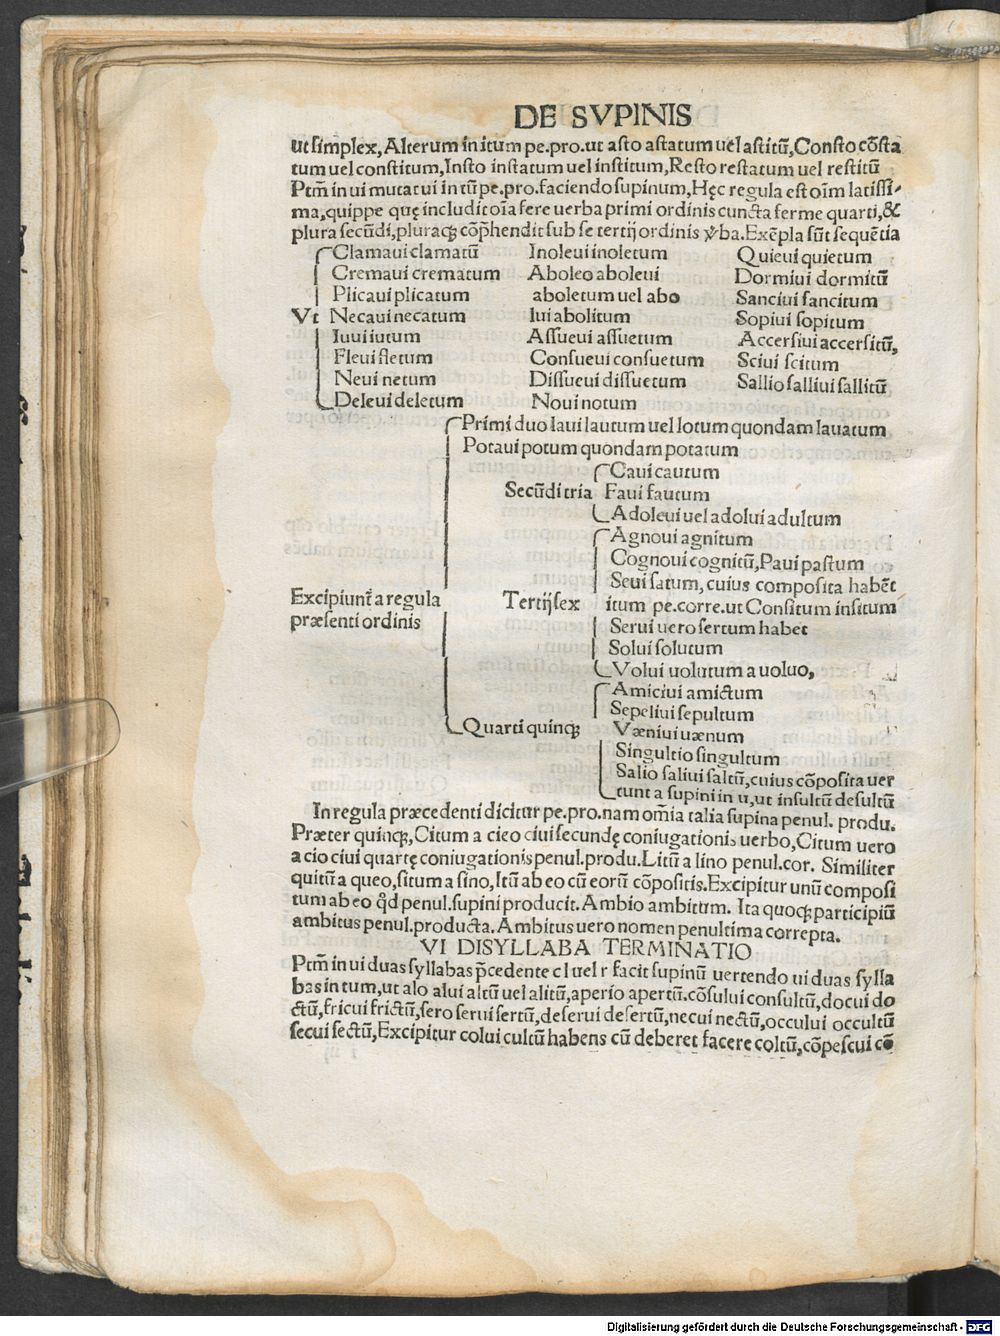 DE SVPINIS
ut simplex, Alterum in itum pe.pro.ut asto astatum uel astitū, Consto cōsta
tum uel constitum, Insto instatum uel institum, Resto restatum uel restitū
Ptm̄ in ui mutat ui in tū pe.pro.faciendo supinum, Hęc regula est oīm latissi-
ma, quippe quę includit oīa fere uerba primi ordinis cuncta ferme quarti, &
plura secūdi, pluraq; cōp̄hendit sub se tertij ordinis ba. Exēpla sūt sequētia
Clamaui clamatū
Cremaui crematum
Plicaui plicatum
Vt Necaui necatum
Iuui iutum
Fleui fletum
Neui netum
Deleui deletum
Inoleui inoletum
Aboleo aboleui
aboletum uel abo
lui abolitum
Assueui assuetum
Consueui consuetum
Dissueui dissuetum
Noui notum
Quieui quietum
Dormiui dormitū
Sanciui sancitum
Sopiui sopitum
Accersiui accersitū,
Sciui scitum
Sallio salliui sallitū
Primi duo laui lautum uel lotum quondam lauatum
Potaui potum quondam potatum
Caui cautum
Secūdi tria Faui fautum
Adoleui uel adolui adultum
Agnoui agnitum
Cognoui cognitū, Paui pastum
Seui satum, cuius composita habēt
Excipiunt̄ a regula
præsenti ordinis
Tertij sex itum pe.corre.ut Consitum insitum
Serui uero sertum habet
Solui solutum
Volui uolutum a uoluo,
Amiciui amictum
Sepeliui sepultum
Quarti quinq; Væniui uænum
Singultio singultum
Salio saliui saltū, cuius cōposita uer
tunt a supini in u, ut insultū desultū
In regula præcedenti dicitur pe.pro.nam om̄ia talia supina penul. produ.
Præter quinq;, Citum a cieo ciui secundę coniugationis uerbo, Citum uero
a cio ciui quartę coniugationis penul.produ. Litū a lino penul.cor. Similiter
quitū a queo, situm a sino, Itū ab eo cū eorū cōpositis. Excipitur unū composi
tum ab eo qd̄ penul.supini producit. Ambio ambitum. Ita quoq; participiū
ambitus penul.producta. Ambitus uero nomen penultima correpta.
VI DISYLLABA TERMINATIO
Ptm̄ in ui duas syllabas p̄cedente c l uel r facit supinū uertendo ui duas sylla
bas in tum, ut alo alui altū uel alitū, aperio apertū.cōsului consultū, docui do
ctū, fricui frictū, sero serui sertū, deserui desertū, necui nectū, occului occultū
secui sectū, Excipitur colui cultū habens cū deberet facere coltū, cōpescui cō
Digitalisierung gefördert durch die Deutsche Forschungsgemeinschaft - DFG